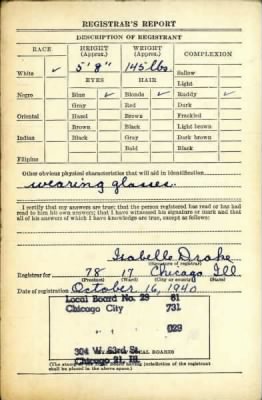 REGISTRAR'S REPORT
DESCRIPTION OF REGISTRANT
RACE HEIGHT (Approx.) WEIGHT (Approx.) COMPLEXION
White ✓ 5' 8" 145 lbs. Sallow
EYES HAIR Light
Negro Blue ✓ Blonde ✓ Ruddy ✓
Gray Red Dark
Oriental Hazel Brown Freckled
Brown Black Light brown
Indian Black Gray Dark brown
Bald Black
Filipino
Other obvious physical characteristics that will aid in identification
wearing glasses.
I certify that my answers are true; that the person registered has read or has had
read to him his own answers; that I have witnessed his signature or mark and that
all of his answers of which I have knowledge are true, except as follows:
Isabelle Drake
(Signature of registrar)
Registrar for 78 17 Chicago Ill.
(Precinct) (Ward) (City or county) (State)
Date of registration October 16, 1940
Local Board No. 23 81
Chicago City 731
1 029
304 W. 63rd St.
Chicago 21, Ill.
(The stamp of the local board having jurisdiction of the registrant
shall be placed in the above space.)